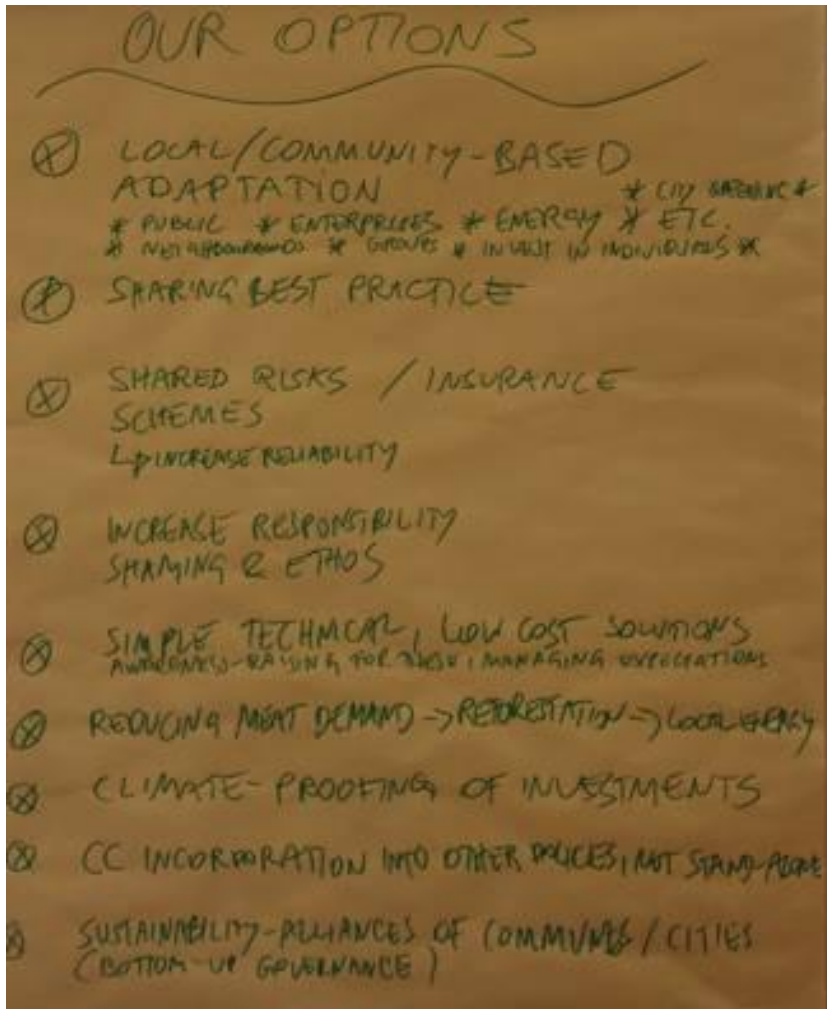 OUR OPTIONS
LOCAL/COMMUNITY-BASED
ADAPTATION
* CITY *
* PUBLIC * ENTERPRISES * ENERGY * ETC.
* NEIGHBOURHOODS * GROUPS * INVEST IN INDIVIDUALS *
SHARING BEST PRACTICE
SHARED RISKS / INSURANCE
SCHEMES
↳ INCREASE RELIABILITY
INCREASE RESPONSIBILITY
SHAMING & ETHOS
SIMPLE TECHNICAL, LOW COST SOLUTIONS
AWARENESS-RAISING FOR, MANAGING EXPECTATIONS
REDUCING MEAT DEMAND -> REFORESTATION -> LOCAL ENERGY
CLIMATE-PROOFING OF INVESTMENTS
CC INCORPORATION INTO OTHER POLICIES, NOT STAND-ALONE
SUSTAINABILITY-ALLIANCES OF COMMUNES/CITIES
(BOTTOM-UP GOVERNANCE)